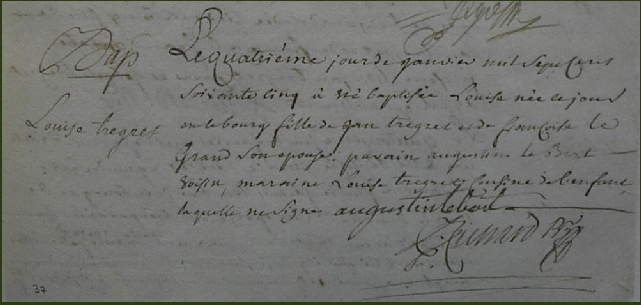 Bap
Louise tregret
Le quatriéme jour de janvier mil sept cens
soixante cinq à été baptisée Louise née ce jour
en le bourg fille de jan tregret et de francoise le
grand son epouse parain augustin le
voisin, maraine Louise tregret cousine de l'enfant
laquelle ne signe augustin
37